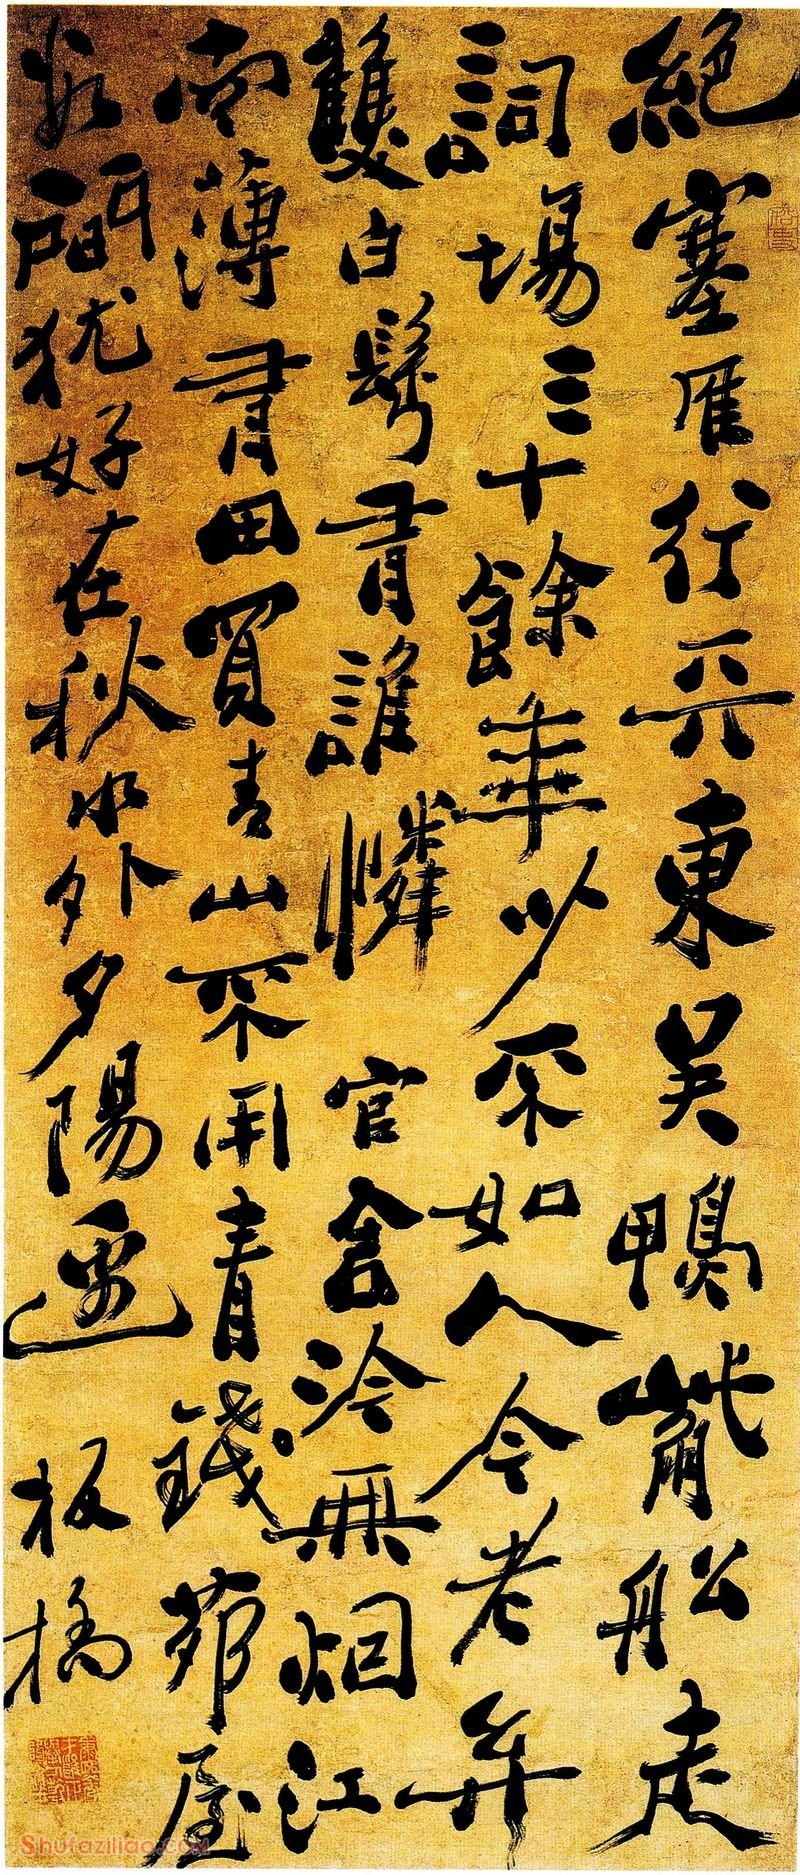 絕塞雁行天東吳鴨觜船走
詞場三十餘年少不如人今老矣
雙白鬢有誰憐 官舍冷無烟江
南薄有田買青山不用青錢茆屋
數間犹好在秋水外夕陽邊 板橋
Shufaziliao.com